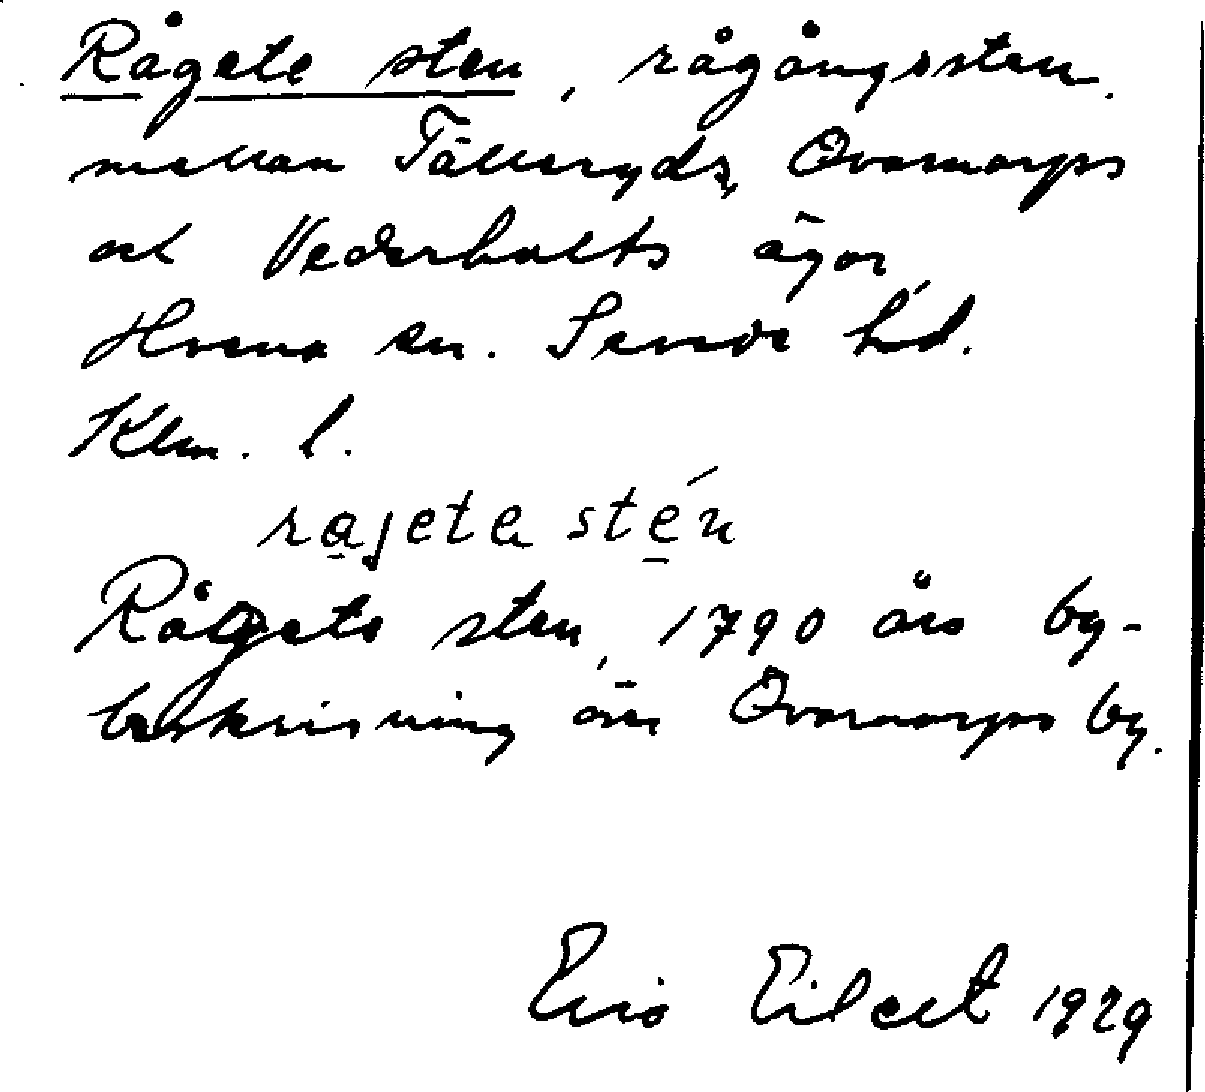 Rågete sten, rågångssten
mellan Tälleryds, Ovarmorps
och Vederhults ägor,
Hvena sn. Sevede h:d.
Klm. l.
rajete sten
Rågete sten, 1790 års by-
beskrivning över Ovarmorps by.
Eric Eilert 1929